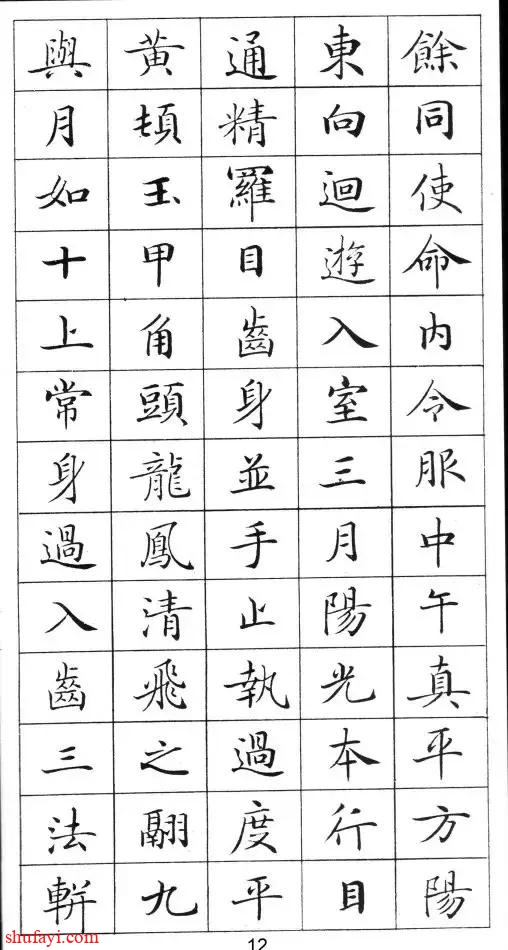 餘同使命内令服中午真平方陽
東向迴遊入室三月陽光本行目
通精羅目齒身並手止執過度平
黄頓玉甲角頭龍鳳清飛之翩九
與月如十上常身過入齒三法軿
shufayi.com
12